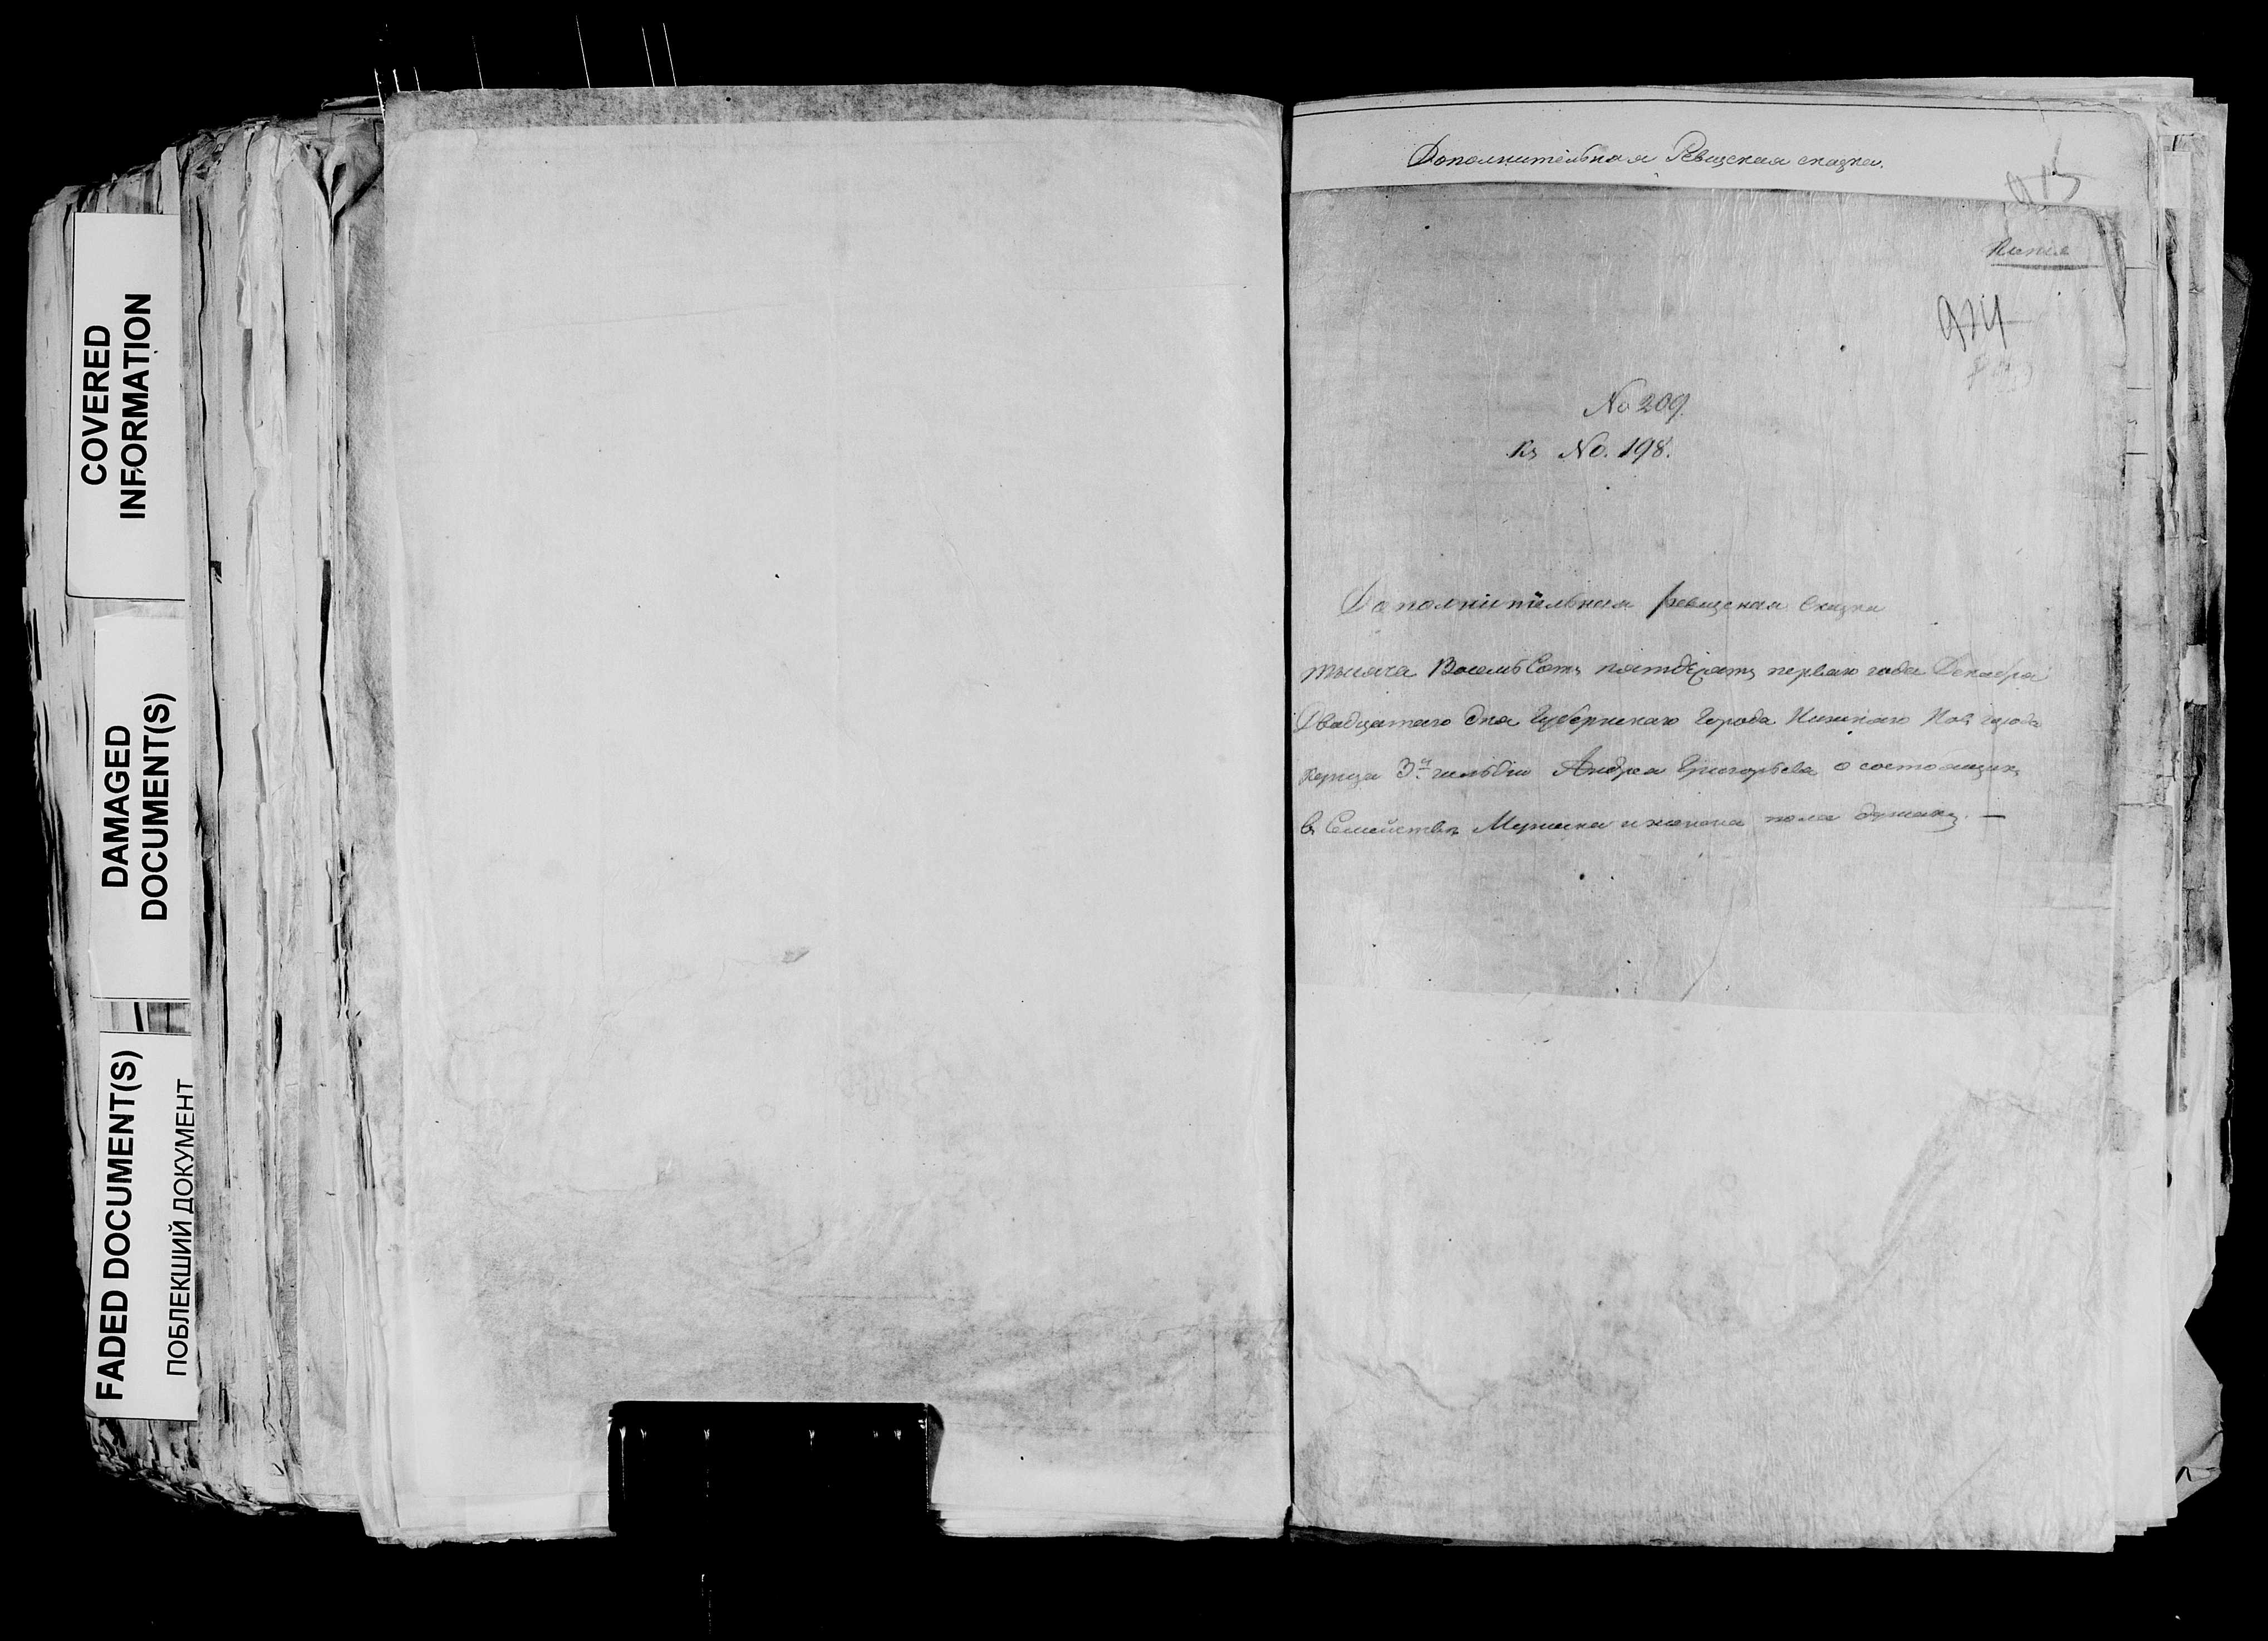 COVERED
INFORMATION
DAMAGED
DOCUMENT(S)
FADED DOCUMENT(S)
ПОБЛЕКШИЙ ДОКУМЕНТ
Дополнительная Ревизская сказка.
915
Копія
924
No 209.
Къ No. 198.
Дополнительная ревизская Сказка
тысяча Восемь Сотъ пятдесятъ перваго года Декабря
Двадцатаго дня Губернскаго Города Нижняго Нов города
купца 3й гильдіи Андрея Григорьева о состоящихъ
въ Семействѣ Мужска и женска пола душахъ. —